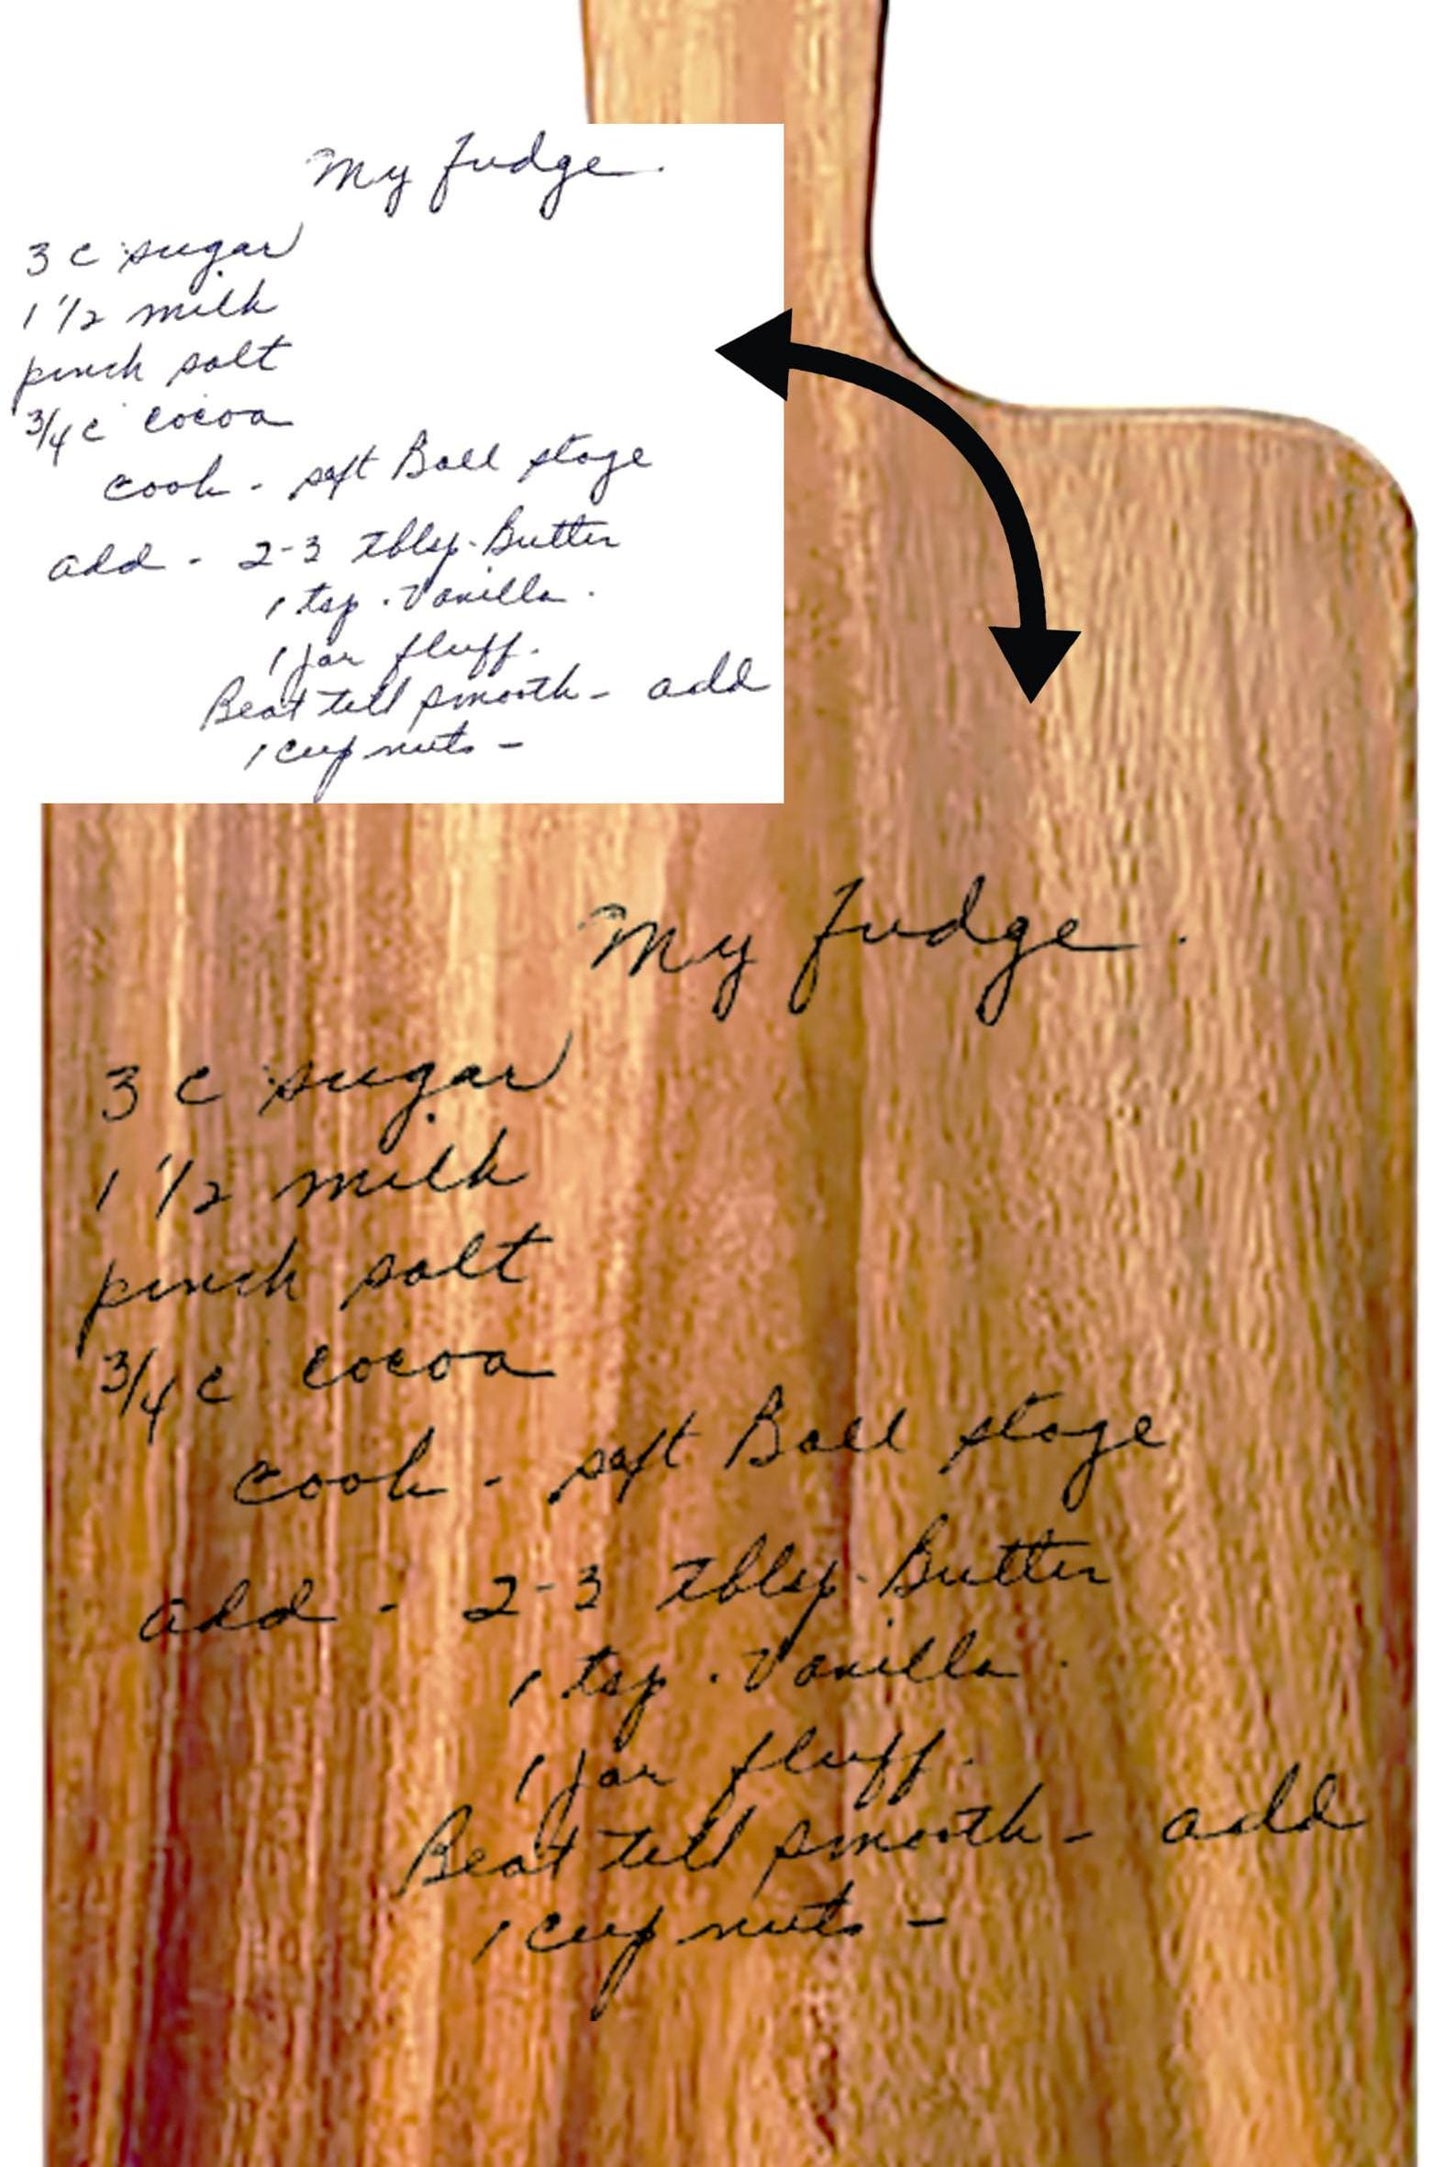 My fudge.
3 c sugar
1 1/2 milk
pinch salt
3/4 c cocoa
cook - soft Ball stage
add - 2-3 tblsp. Butter
1 tsp. Vanilla.
1 jar fluff.
Beat till smooth - add
1 cup nuts -
My fudge.
3 c sugar
1 1/2 milk
pinch salt
3/4 c cocoa
cook - soft Ball stage
add - 2-3 tblsp. Butter
1 tsp. Vanilla.
1 jar fluff.
Beat till smooth - add
1 cup nuts -